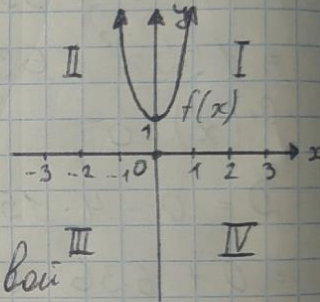 y
II I
f(x)
1
-3 -2 -1 0 1 2 3 x
III IV
вой